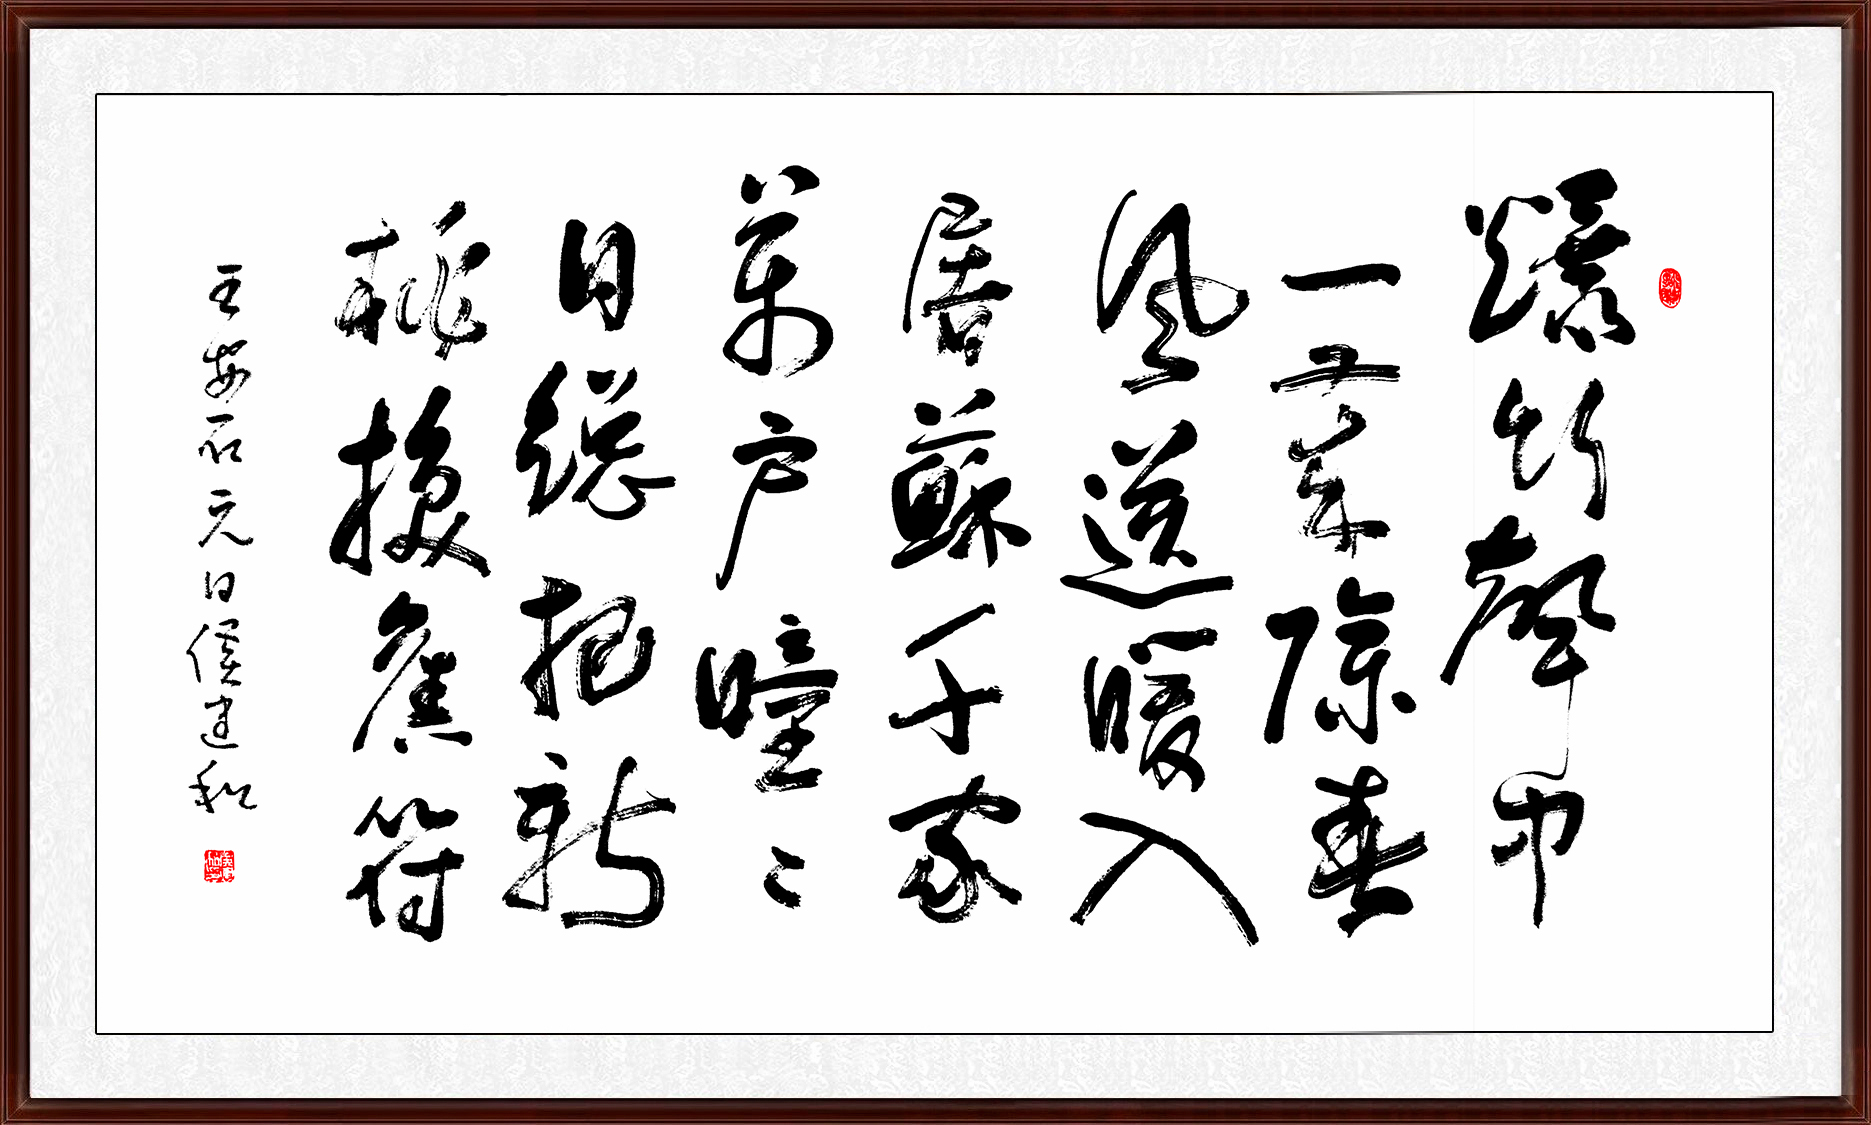 爆竹聲中
一歲除春
風送暖入
屠蘇千家
萬戶曈々
日總把新
桃換舊符
王安石元日侯建和